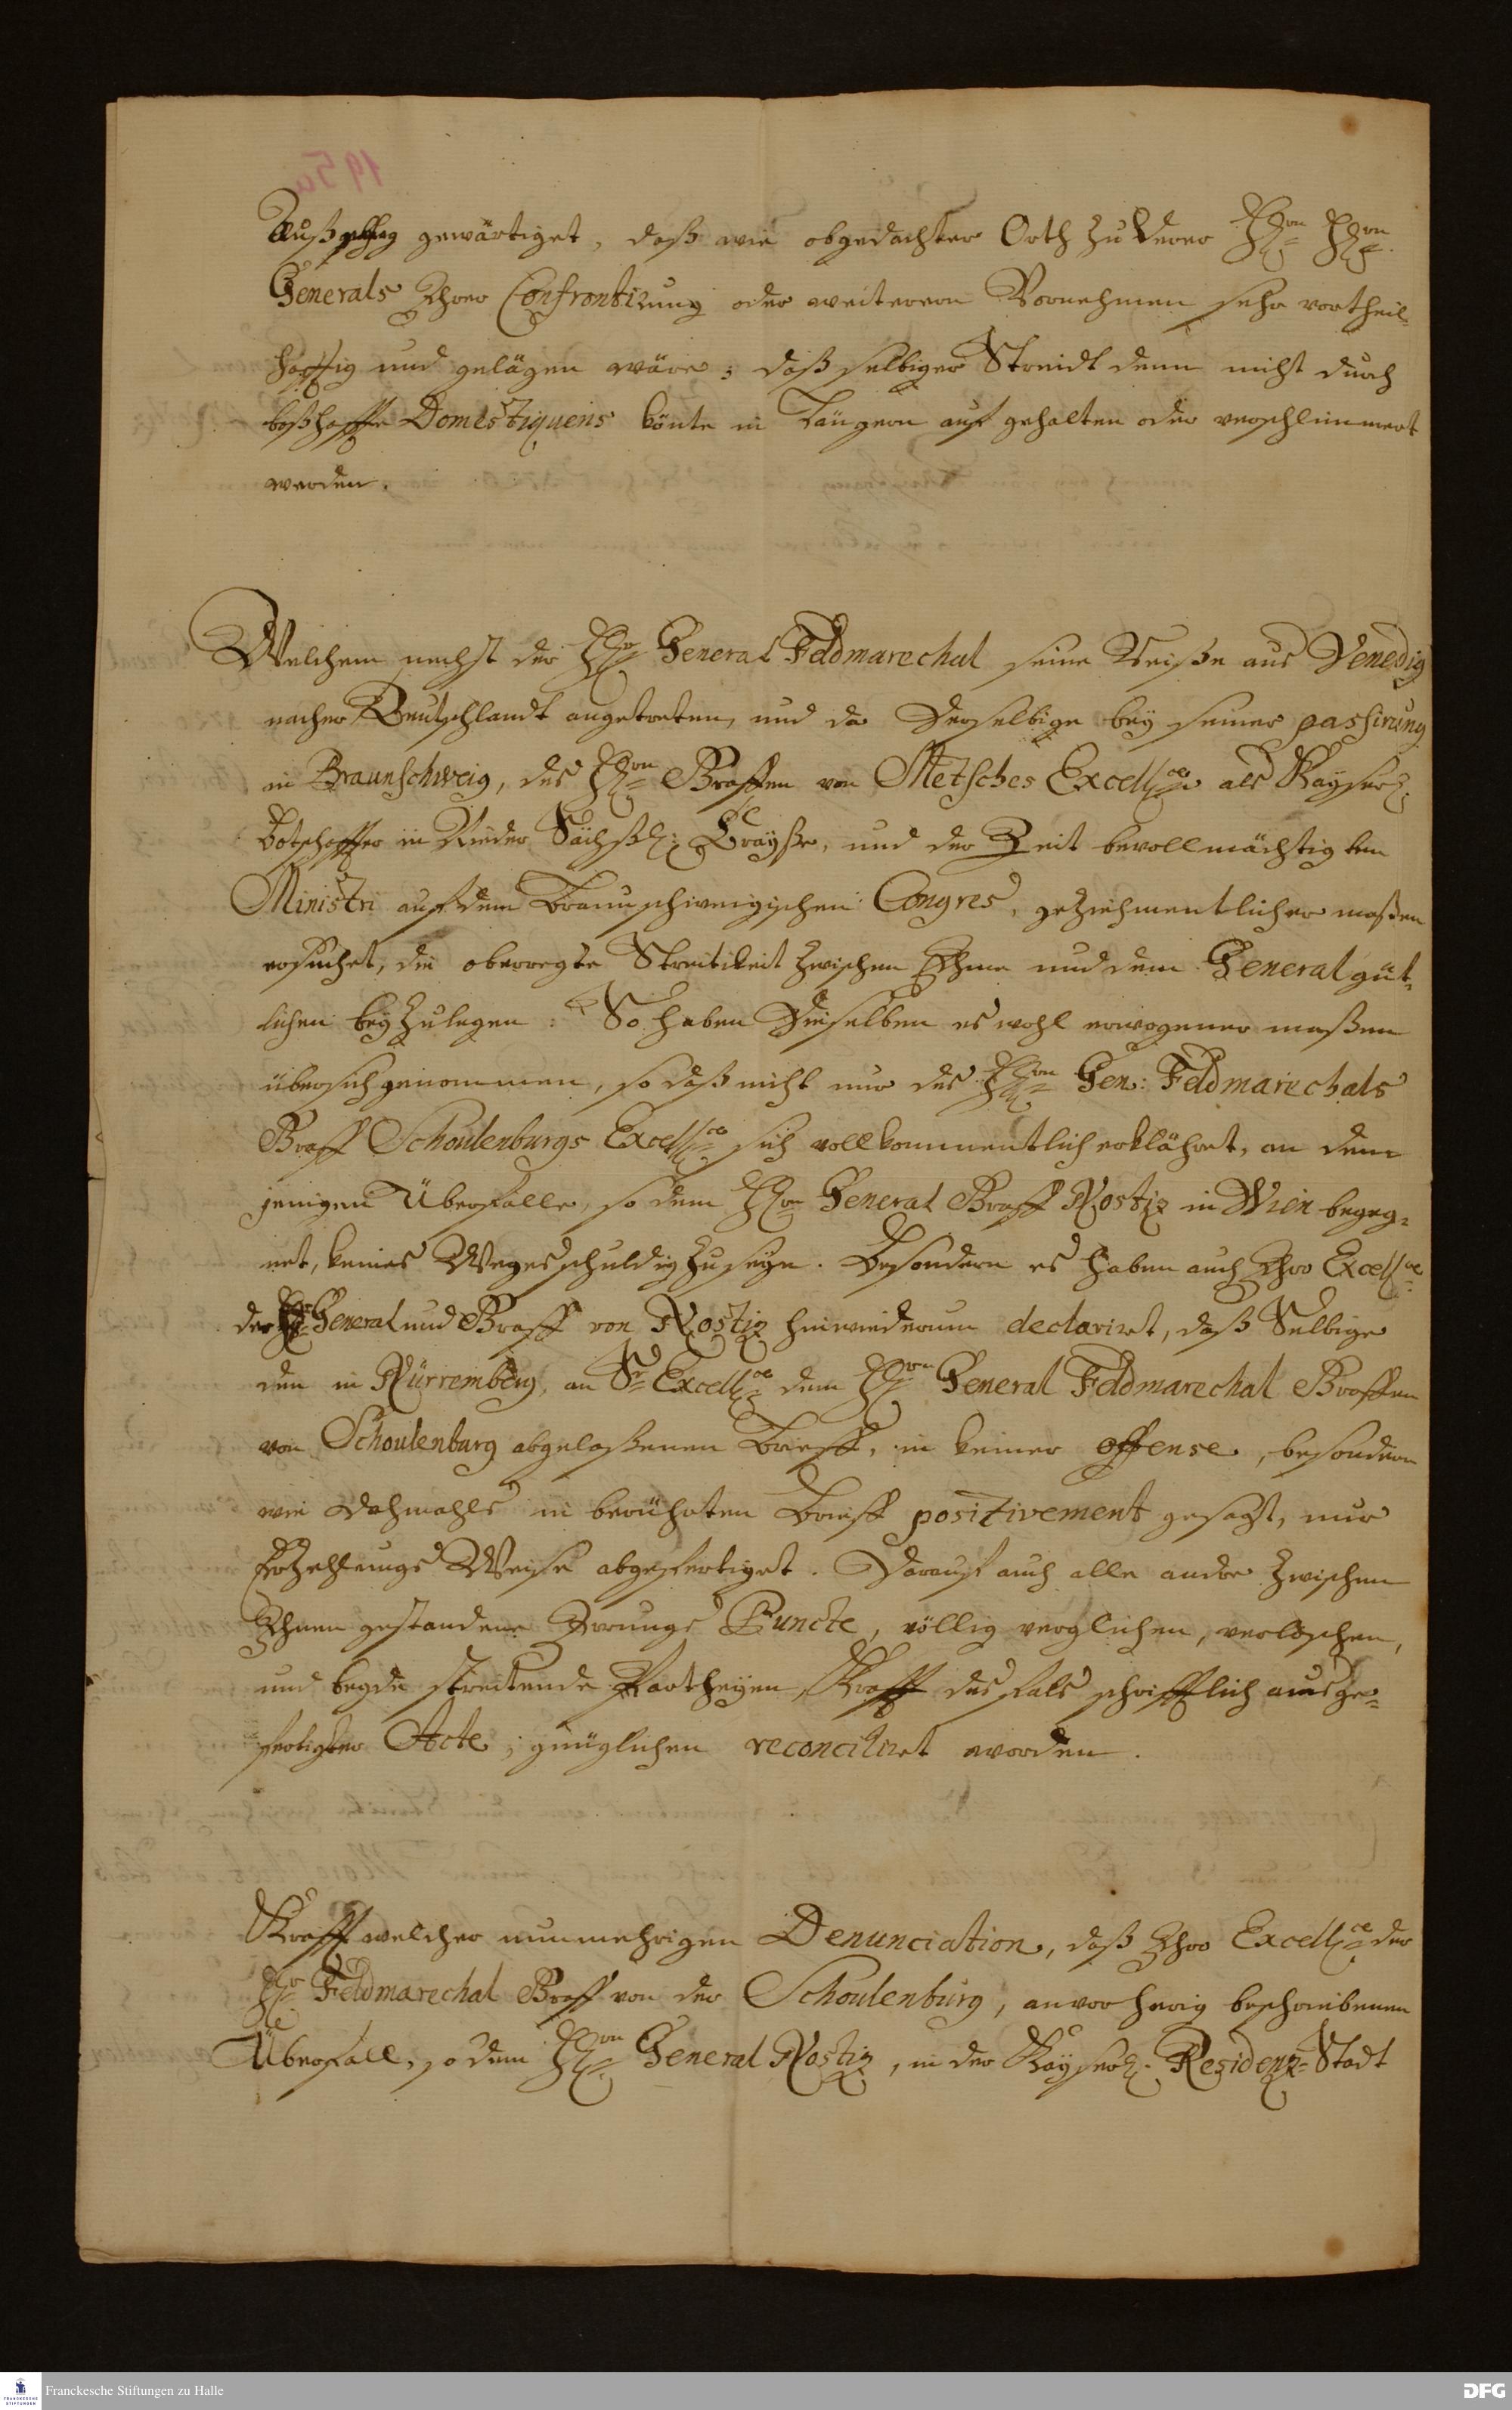 Außschlag gewärtiget, daß wie obgedachter Orth zu Derer Hℓrn Hℓrn
Generals Ihrer Confrontirung oder weiterern Vornehmen sehr vortheil-
hafftig und gelägen wäre; daß selbiger Streidt denn nicht durch
boßhaffte Domestiquens könte in Längern auf gehalten oder verschlimmert
werden.
Welchem nechst der Hℓr General Feldmarechal seine Reiße aus Venedig
nacher Deutschlandt angetreten, und da Derselbige bey seiner passirung
in Braunschweig, des Hℓrn Graffen von Metsches Excellce als Kayserl.
Botschaffter in Nieder Sächßl: Crayße, und der Zeit bevollmächtigten
Ministri auf dem Braunschweigischen Congres, geziehmentlicher maßen
ersuchet, die oberregte Streitikeit zwischen Ihme und dem General güt-
lichen beyzulegen: So haben Dieselben es wohl erwogener maßen
über sich genommen, so daß nicht nur des Hℓrn Gen: Feldmarechals
Graff Schoulenburgs Excellce sich vollkommentlich erklähret, an dem
jenigen Überfalle, so dem Hℓrn General Graff Nostiz in Wien begeg-
net, keines Weges schuldig zu seyn. Besondern es haben auch Ihro Excellce
der Hℓr General und Graff von Nostiz hinwiederum declariret, daß Selbige
den in Nürremberg, an Sr Excellce dem Hℓrn General Feldmarechal Graffen
von Schoulenburg abgelaßenen Brieff, in keiner offense, besondern
wie Dahmahls in berührten Brieff positivement gesagt, nur
Erzehlungs Weise abgefertiget. Darauf auch alle andre zwischen
Ihnen gestandene Irrungs Puncte, völlig verglichen, verloschen,
und beyde streitende Partheyen, Krafft desfals schrifftlich ausge-
fertigter Acte, gnüglichen reconciliret worden.
Krafft welcher nunmehrigen Denunciation, daß Ihro Excellce der
Hℓr Feldmarechal Graff von der Schoulenburg, an vorherig beschriebenen
Überfall, so dem Hℓrn General Nostiz, in der Kayserl. Residenz-Stadt
Franckesche Stiftungen zu Halle
DFG